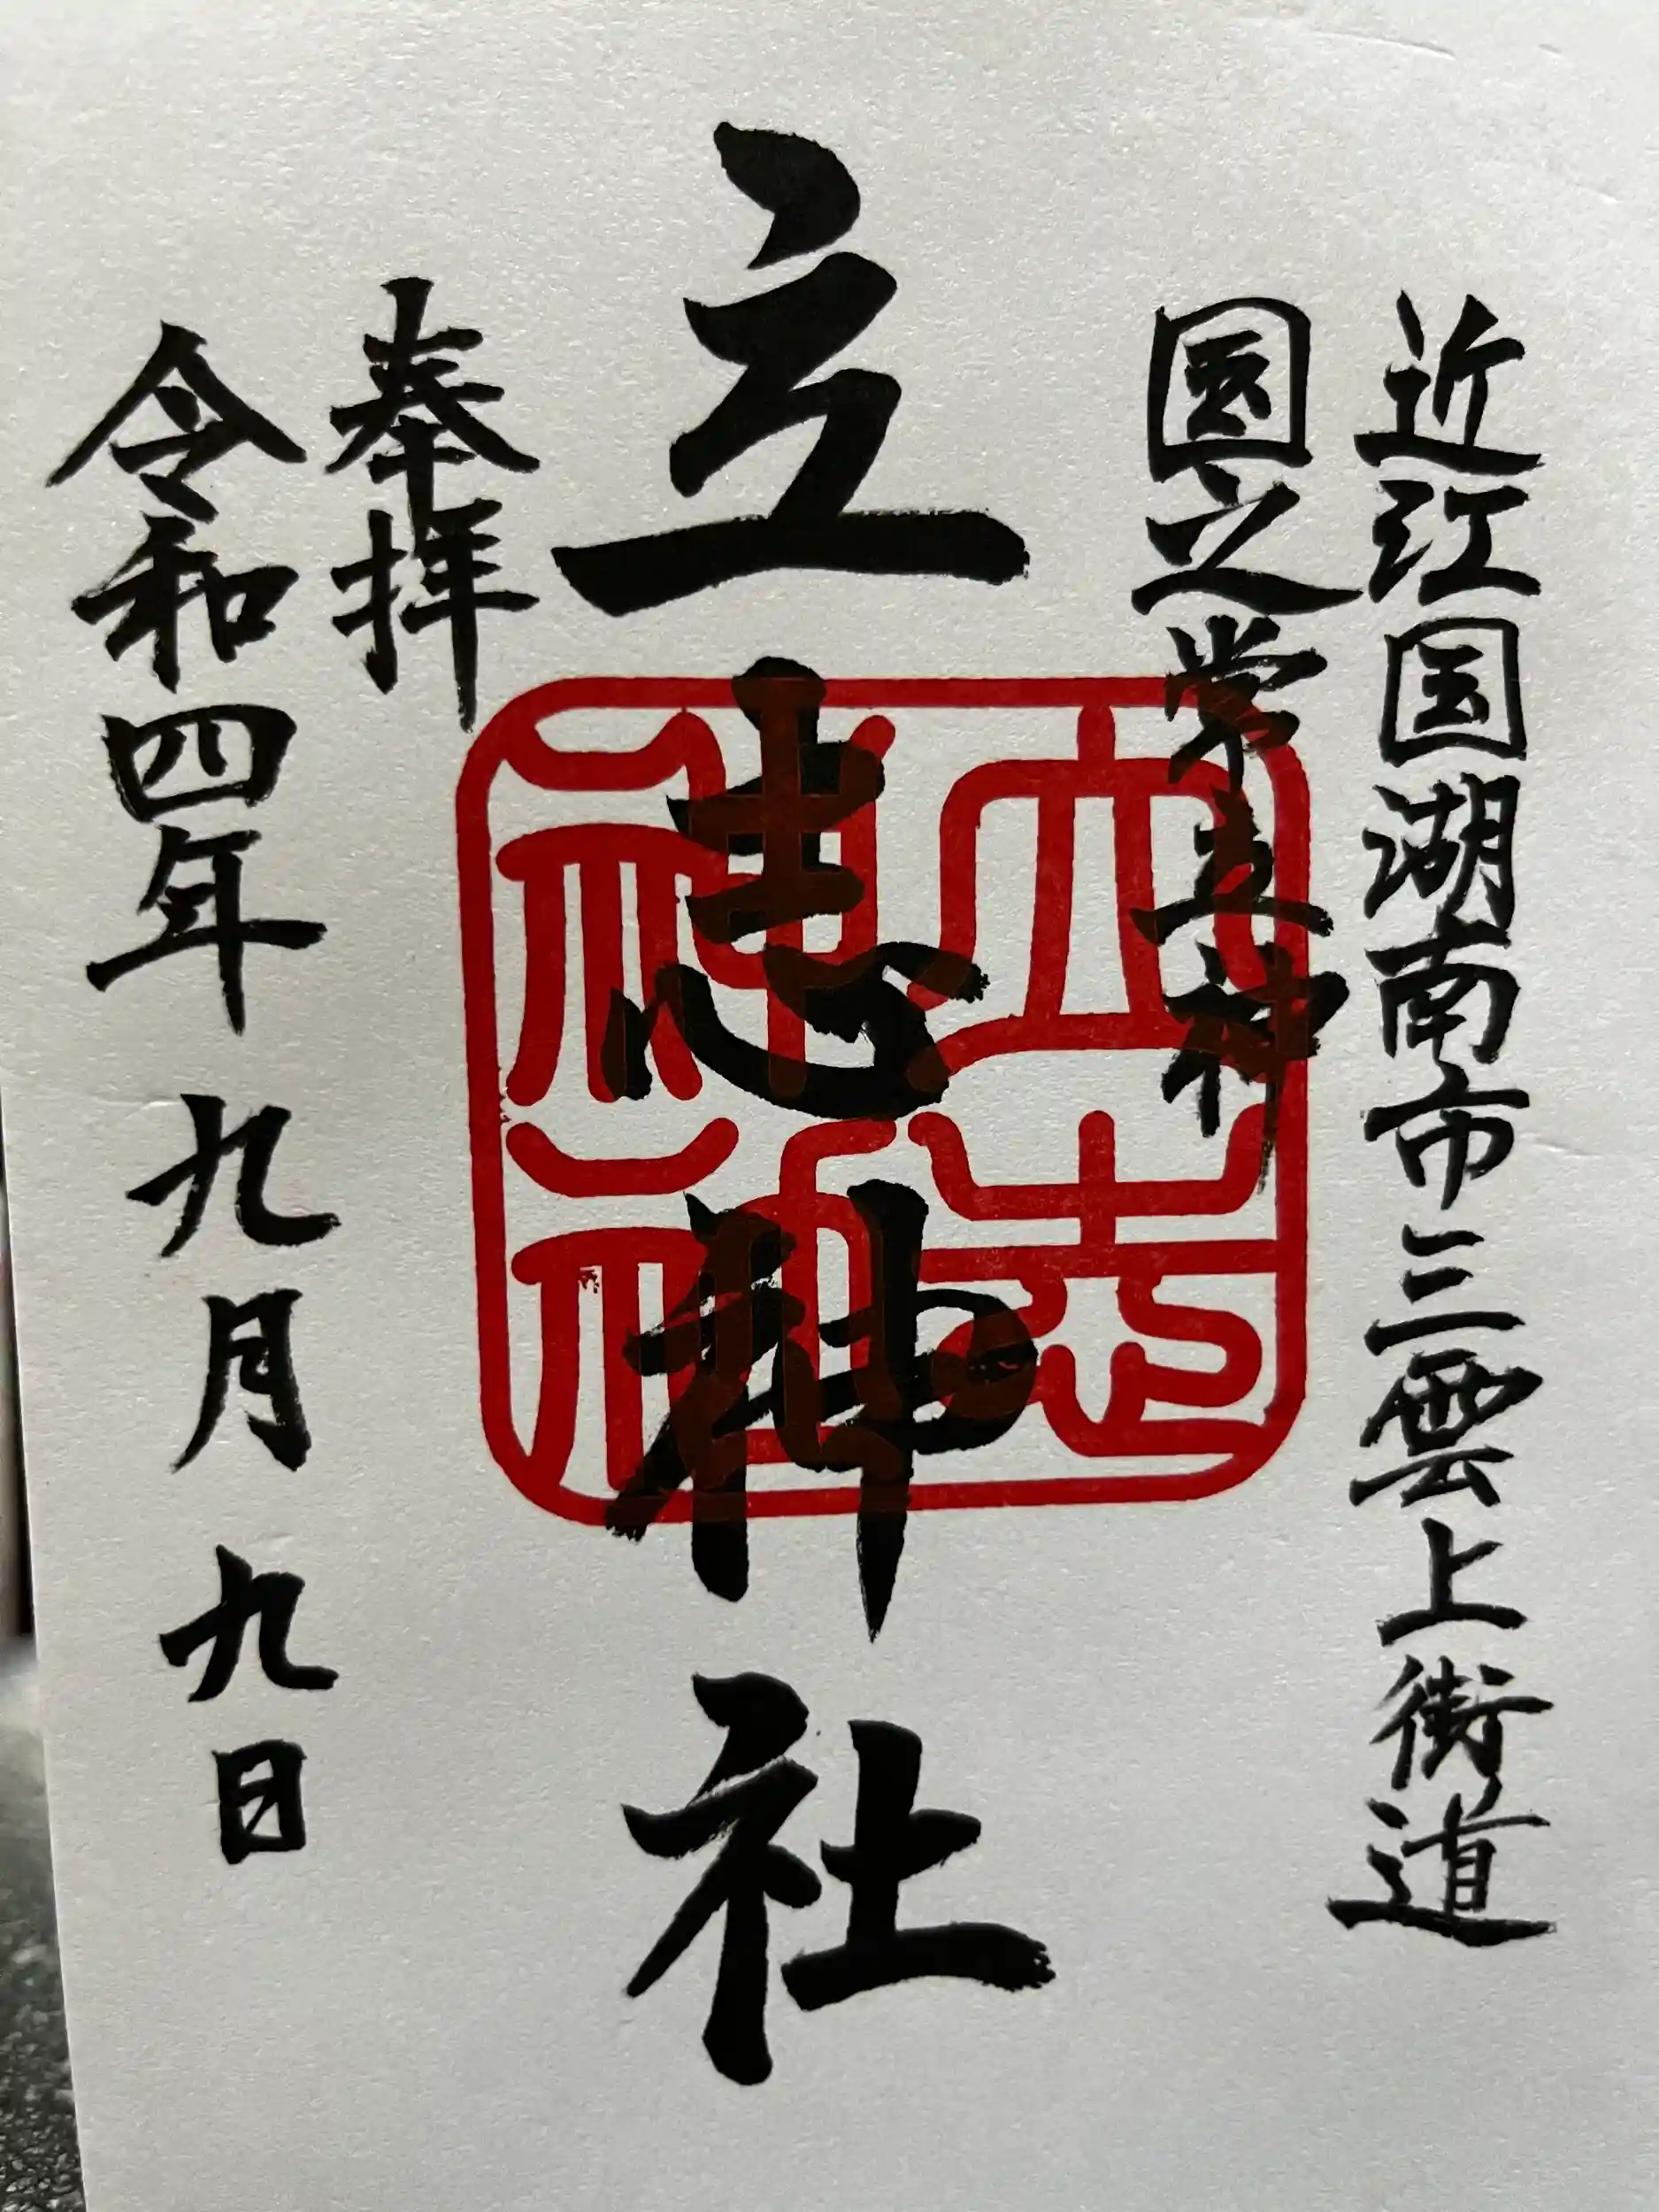 近江国湖南市三雲上街道
国之常立神
立志神社
奉拝
令和四年九月九日
立志神社